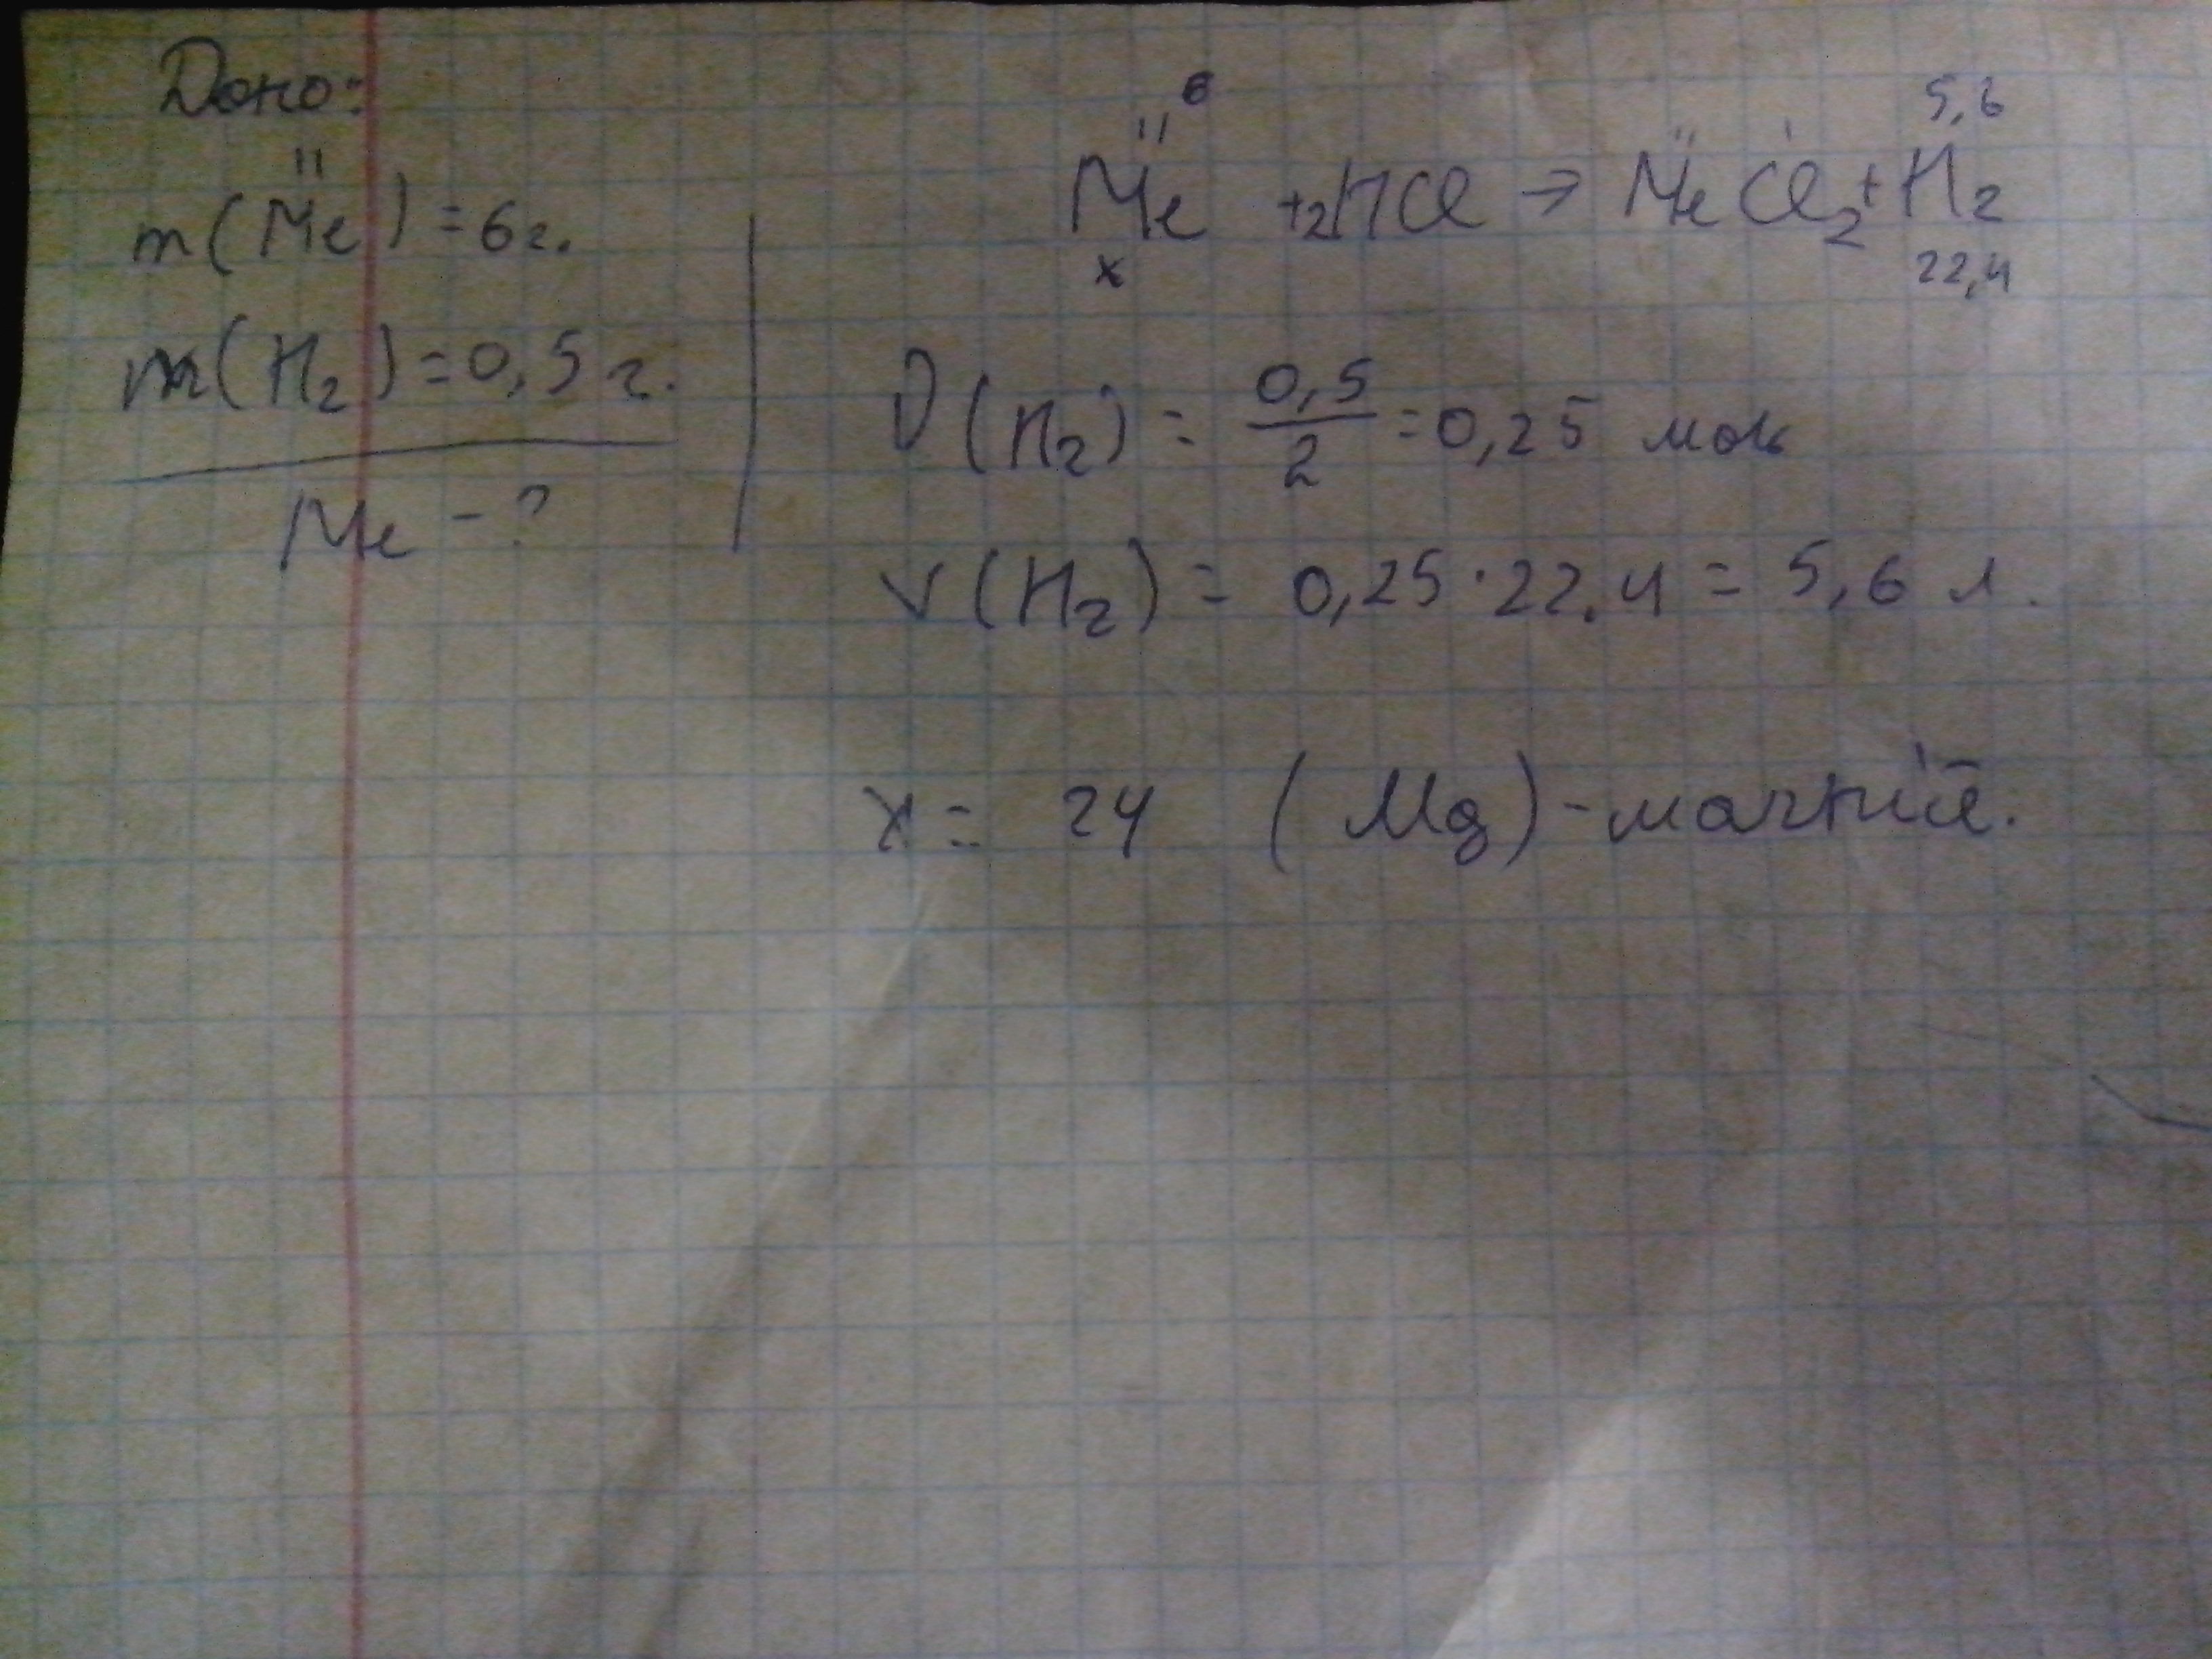 Дано:
II
m(Me) = 6г.
m(H₂) = 0,5 г.
Me - ?
6 5,6
II II I
Me + 2HCl → MeCl₂ + H₂
x 22,4
ν(H₂) = 0,5/2 = 0,25 моль
V(H₂) = 0,25 · 22,4 = 5,6 л.
x = 24 (Mg) - магній.